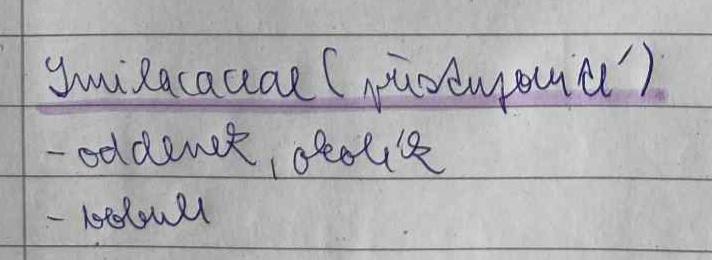 Smilacaceae (přestupovité)
- oddenek, okolík
- bobule